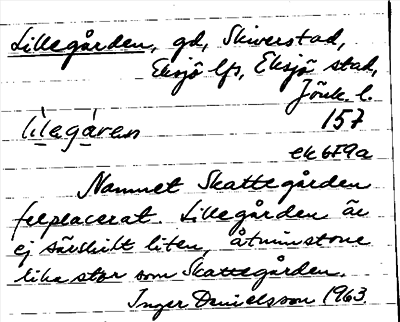 Lillegården, gd, Skiverstad,
Eksjö lfs, Eksjö stad,
Jönk. l.
lilegåren 157
ek 6F9a
Namnet Skattegården
felplacerat. Lillegården är
ej särskilt liten, åtminstone
lika stor som Skattegården.
Inger Danielsson 1963.